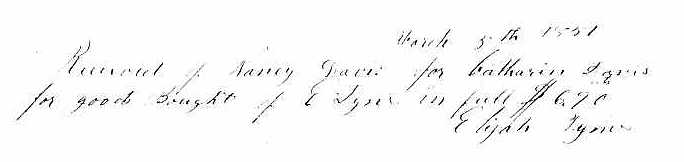 March 5th 1851
Received of Nancy Davis for Catharin
for good bought of E Tyner in full $6.90
Elijah Tyner